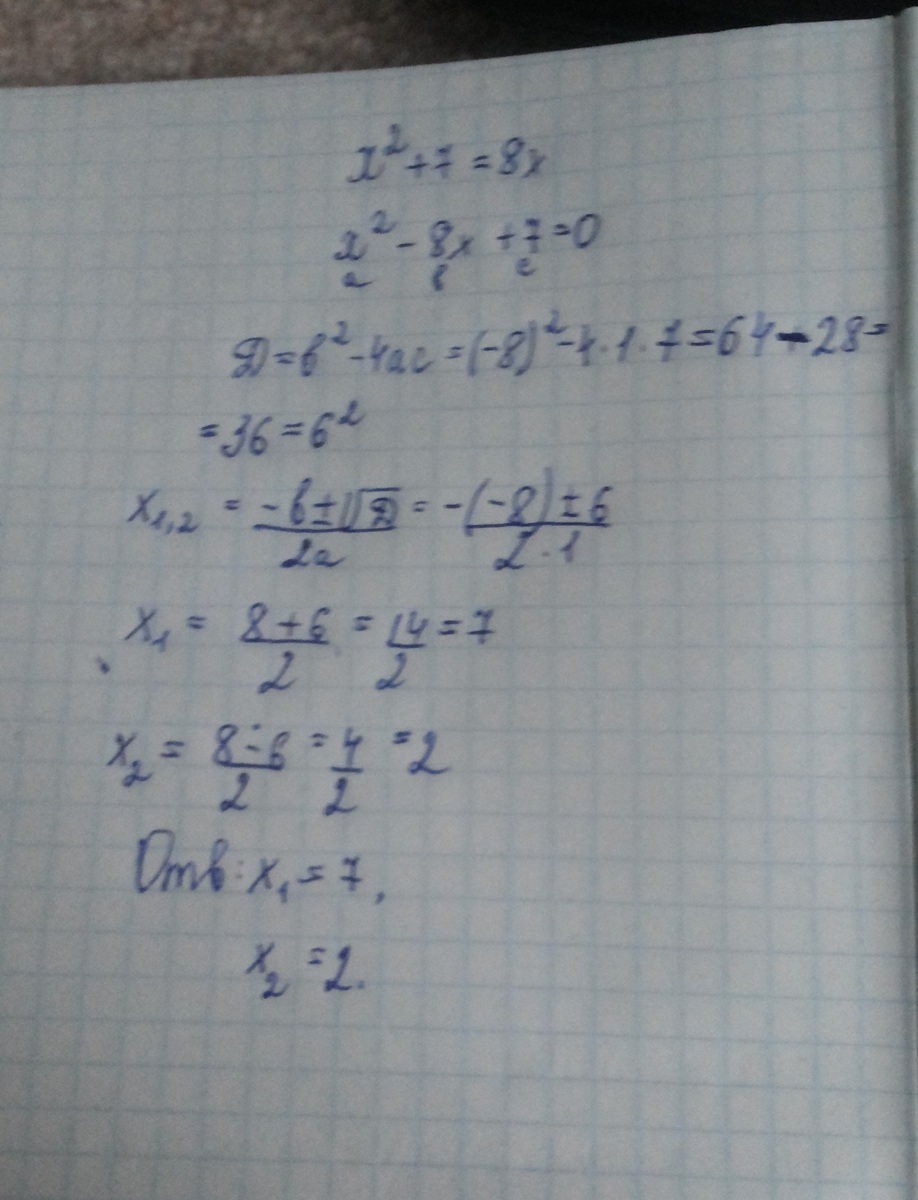 x² + 7 = 8x
x² - 8x + 7 = 0
а в с
Д = в² - 4ас = (-8)² - 4 · 1 · 7 = 64 - 28 =
= 36 = 6²
x₁,₂ = (-в ± √Д)/2а = (-(-8) ± 6)/(2 · 1)
x₁ = (8 + 6)/2 = 14/2 = 7
x₂ = (8 - 6)/2 = 4/2 = 2
Отв: x₁ = 7,
x₂ = 2.